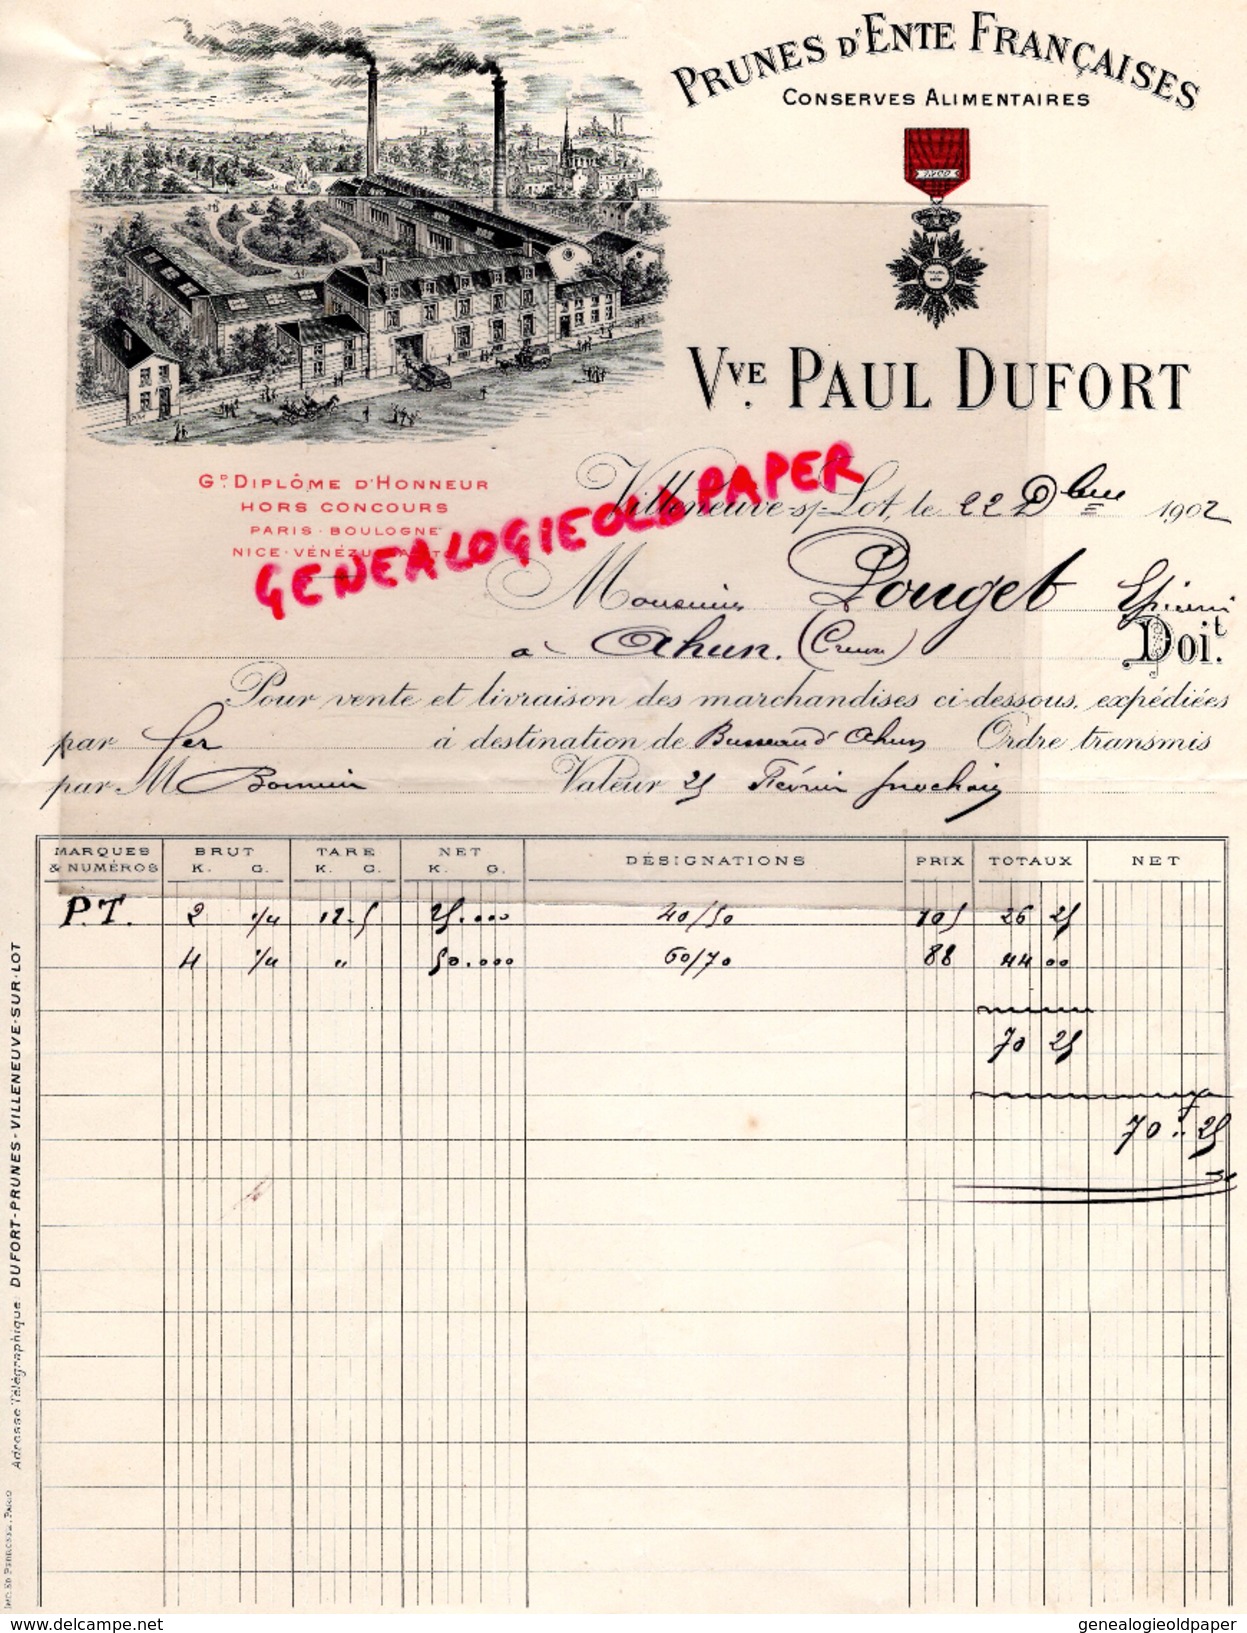 PRUNES D'ENTE FRANÇAISES
CONSERVES ALIMENTAIRES
1900
VVE PAUL DUFORT
GD. DIPLÔME D'HONNEUR
HORS CONCOURS
PARIS - BOULOGNE
NICE - VÉNÉZU
GENEALOGIEOLDPAPER
Villeneuve-s/-Lot, le 22 Dbre 1902
Monsieur Pouget Epicier
à Ahun. (Creuse) Doit.
Pour vente et livraison des marchandises ci-dessous, expédiées
par fer à destination de Busseau d'Ahun Ordre transmis
par M Valeur 25 Février prochain
MARQUES & NUMÉROS BRUT K. G. TARE K. G. NET K. G. DÉSIGNATIONS PRIX TOTAUX NET
P.T. 2 1/4 12.5 25.000 40/50 105 26 25
4 1/4 " 50.000 60/70 88 44 00
70 25
70 f. 25
Adresse Télégraphique: DUFORT-PRUNES-VILLENEUVE-SUR-LOT
delcampe.net
genealogieoldpaper